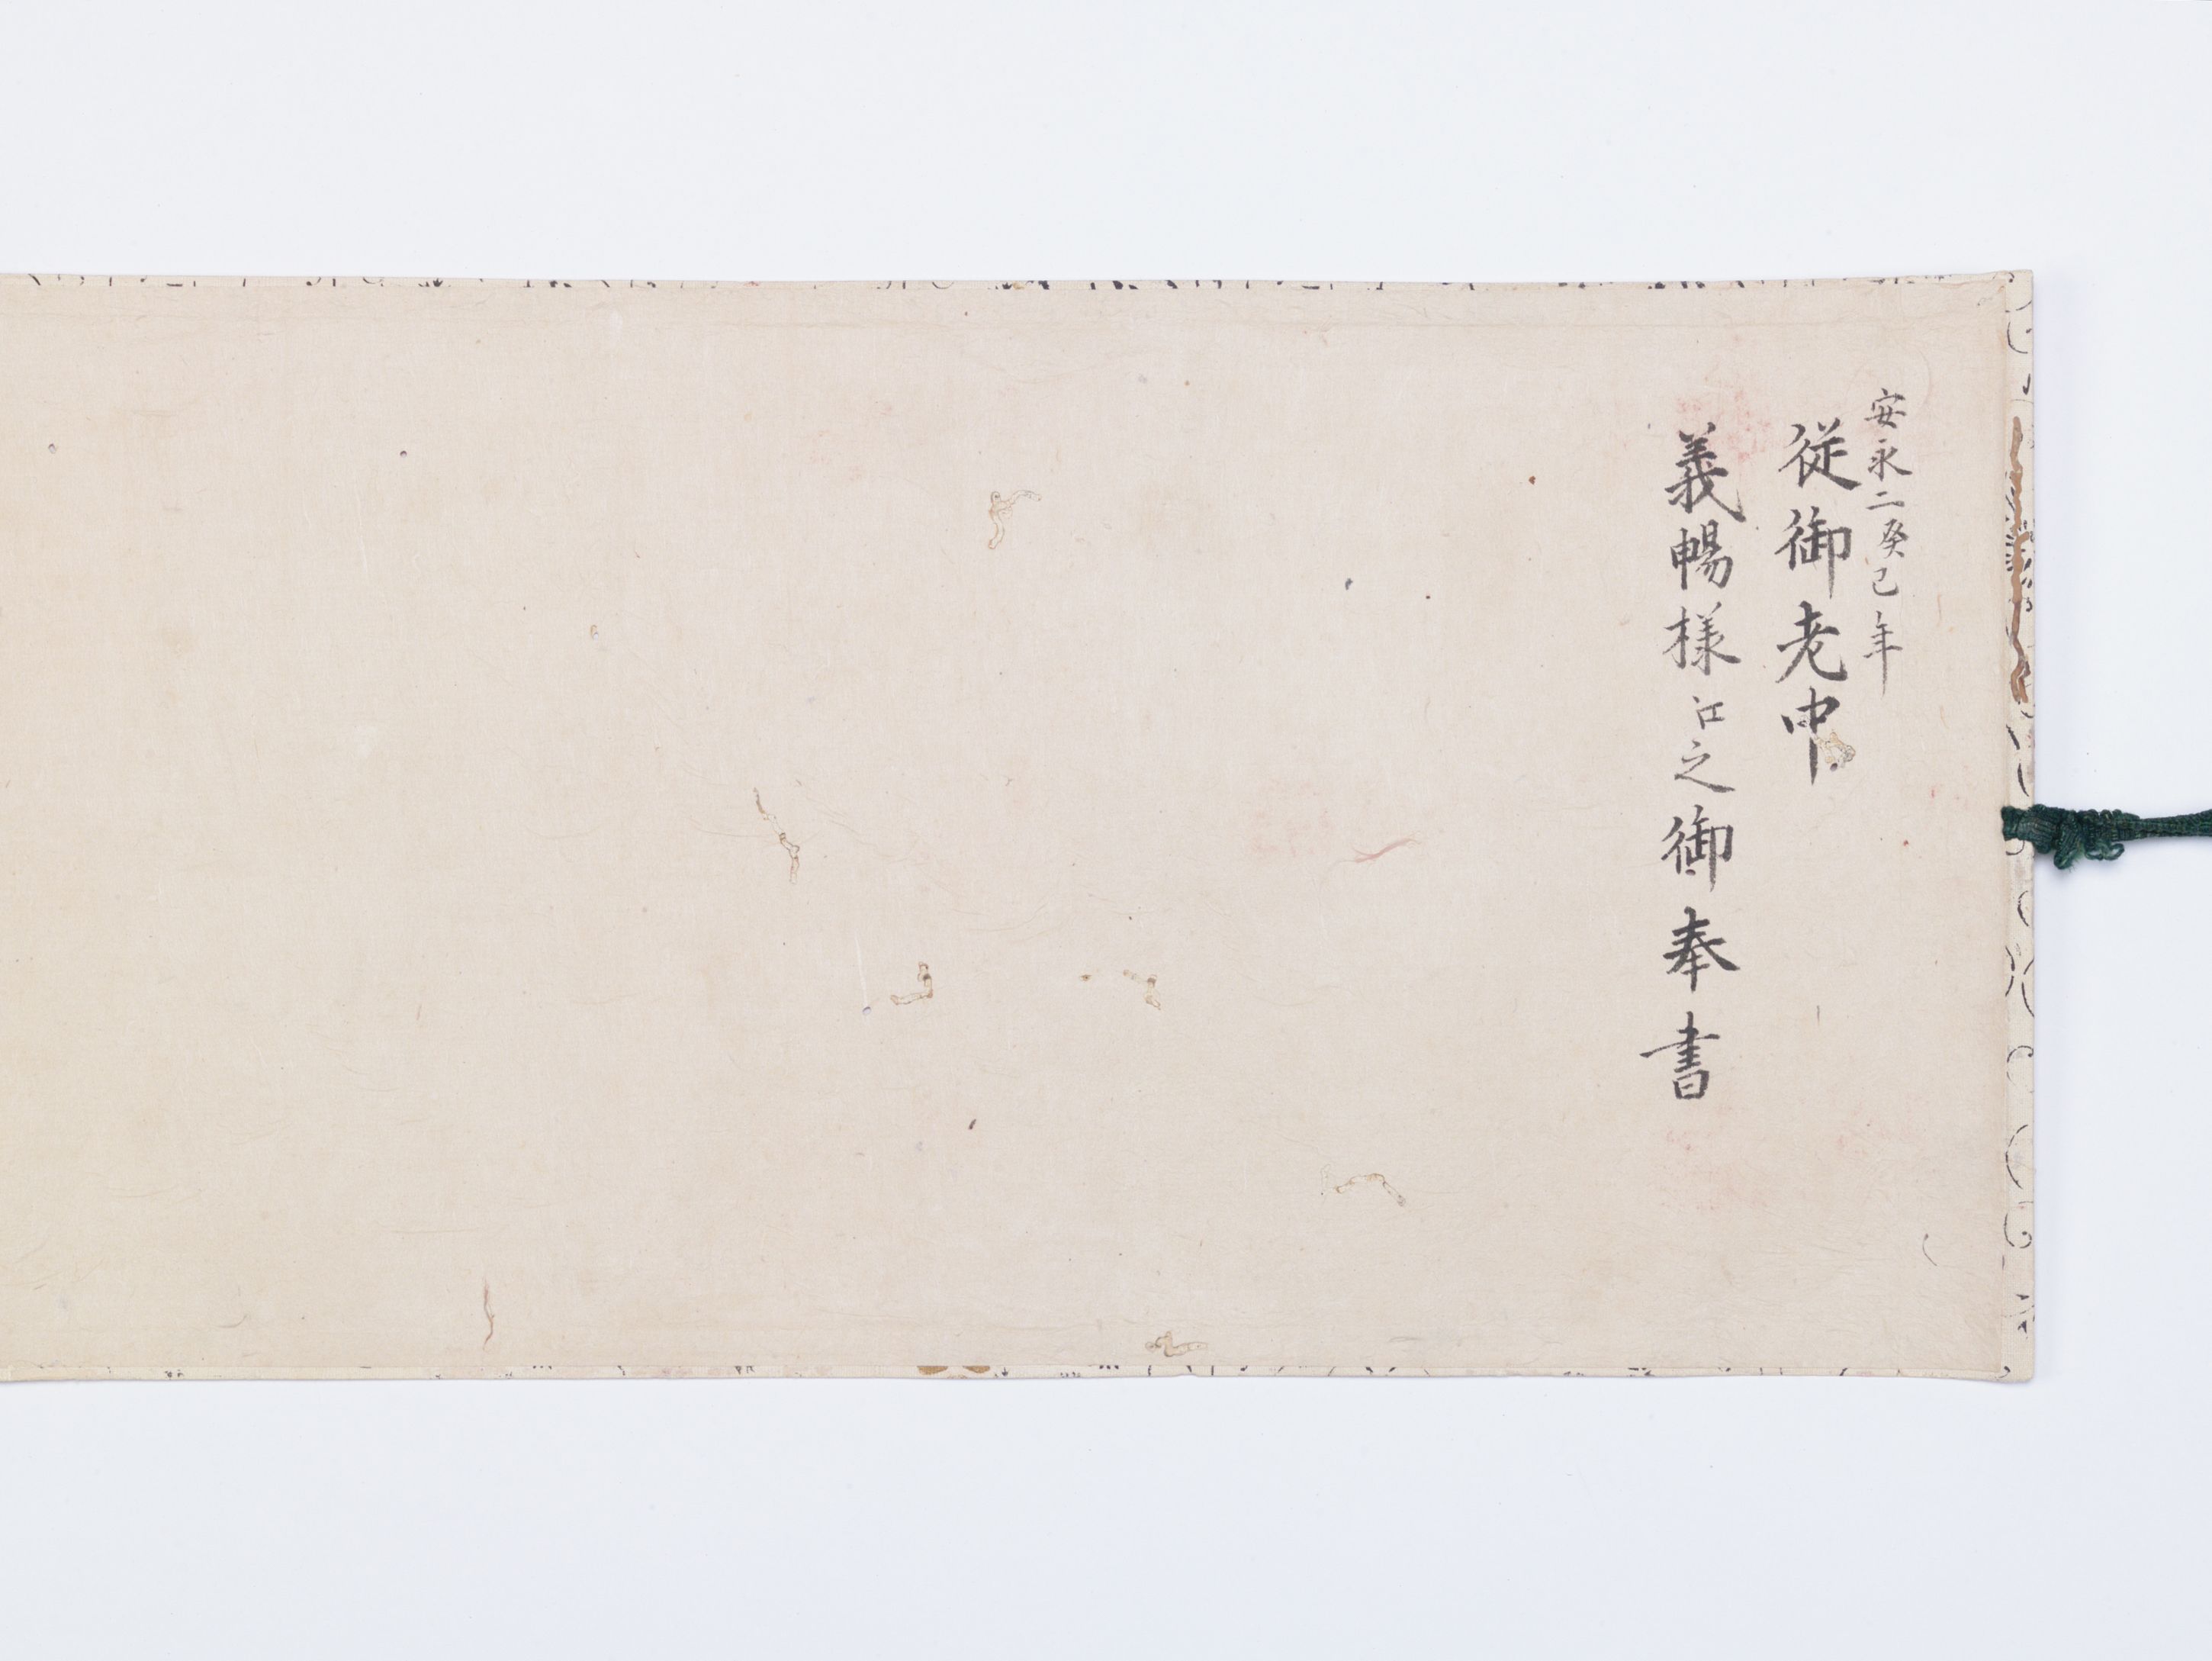 安永二癸巳年
従御老中
義暢様江之御奉書